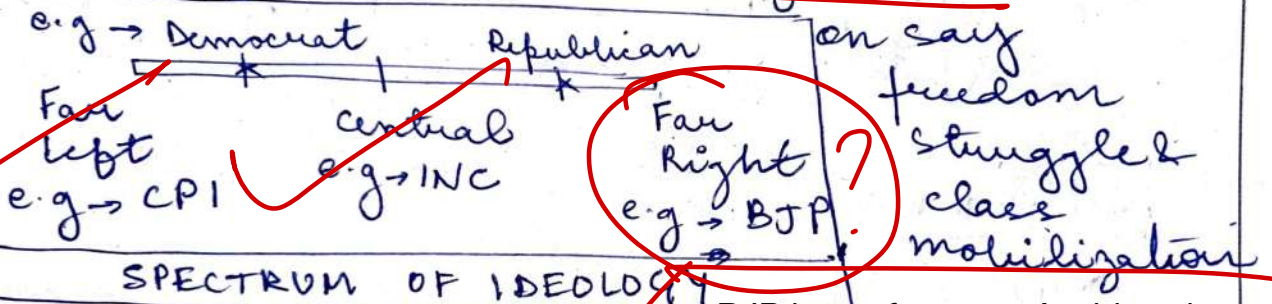 e.g → Democrat Republican
Far Left
e.g → CPI
Central
e.g → INC
Far Right
e.g → BJP
?
SPECTRUM OF IDEOLOGY
on say
freedom
struggle &
class
mobilization